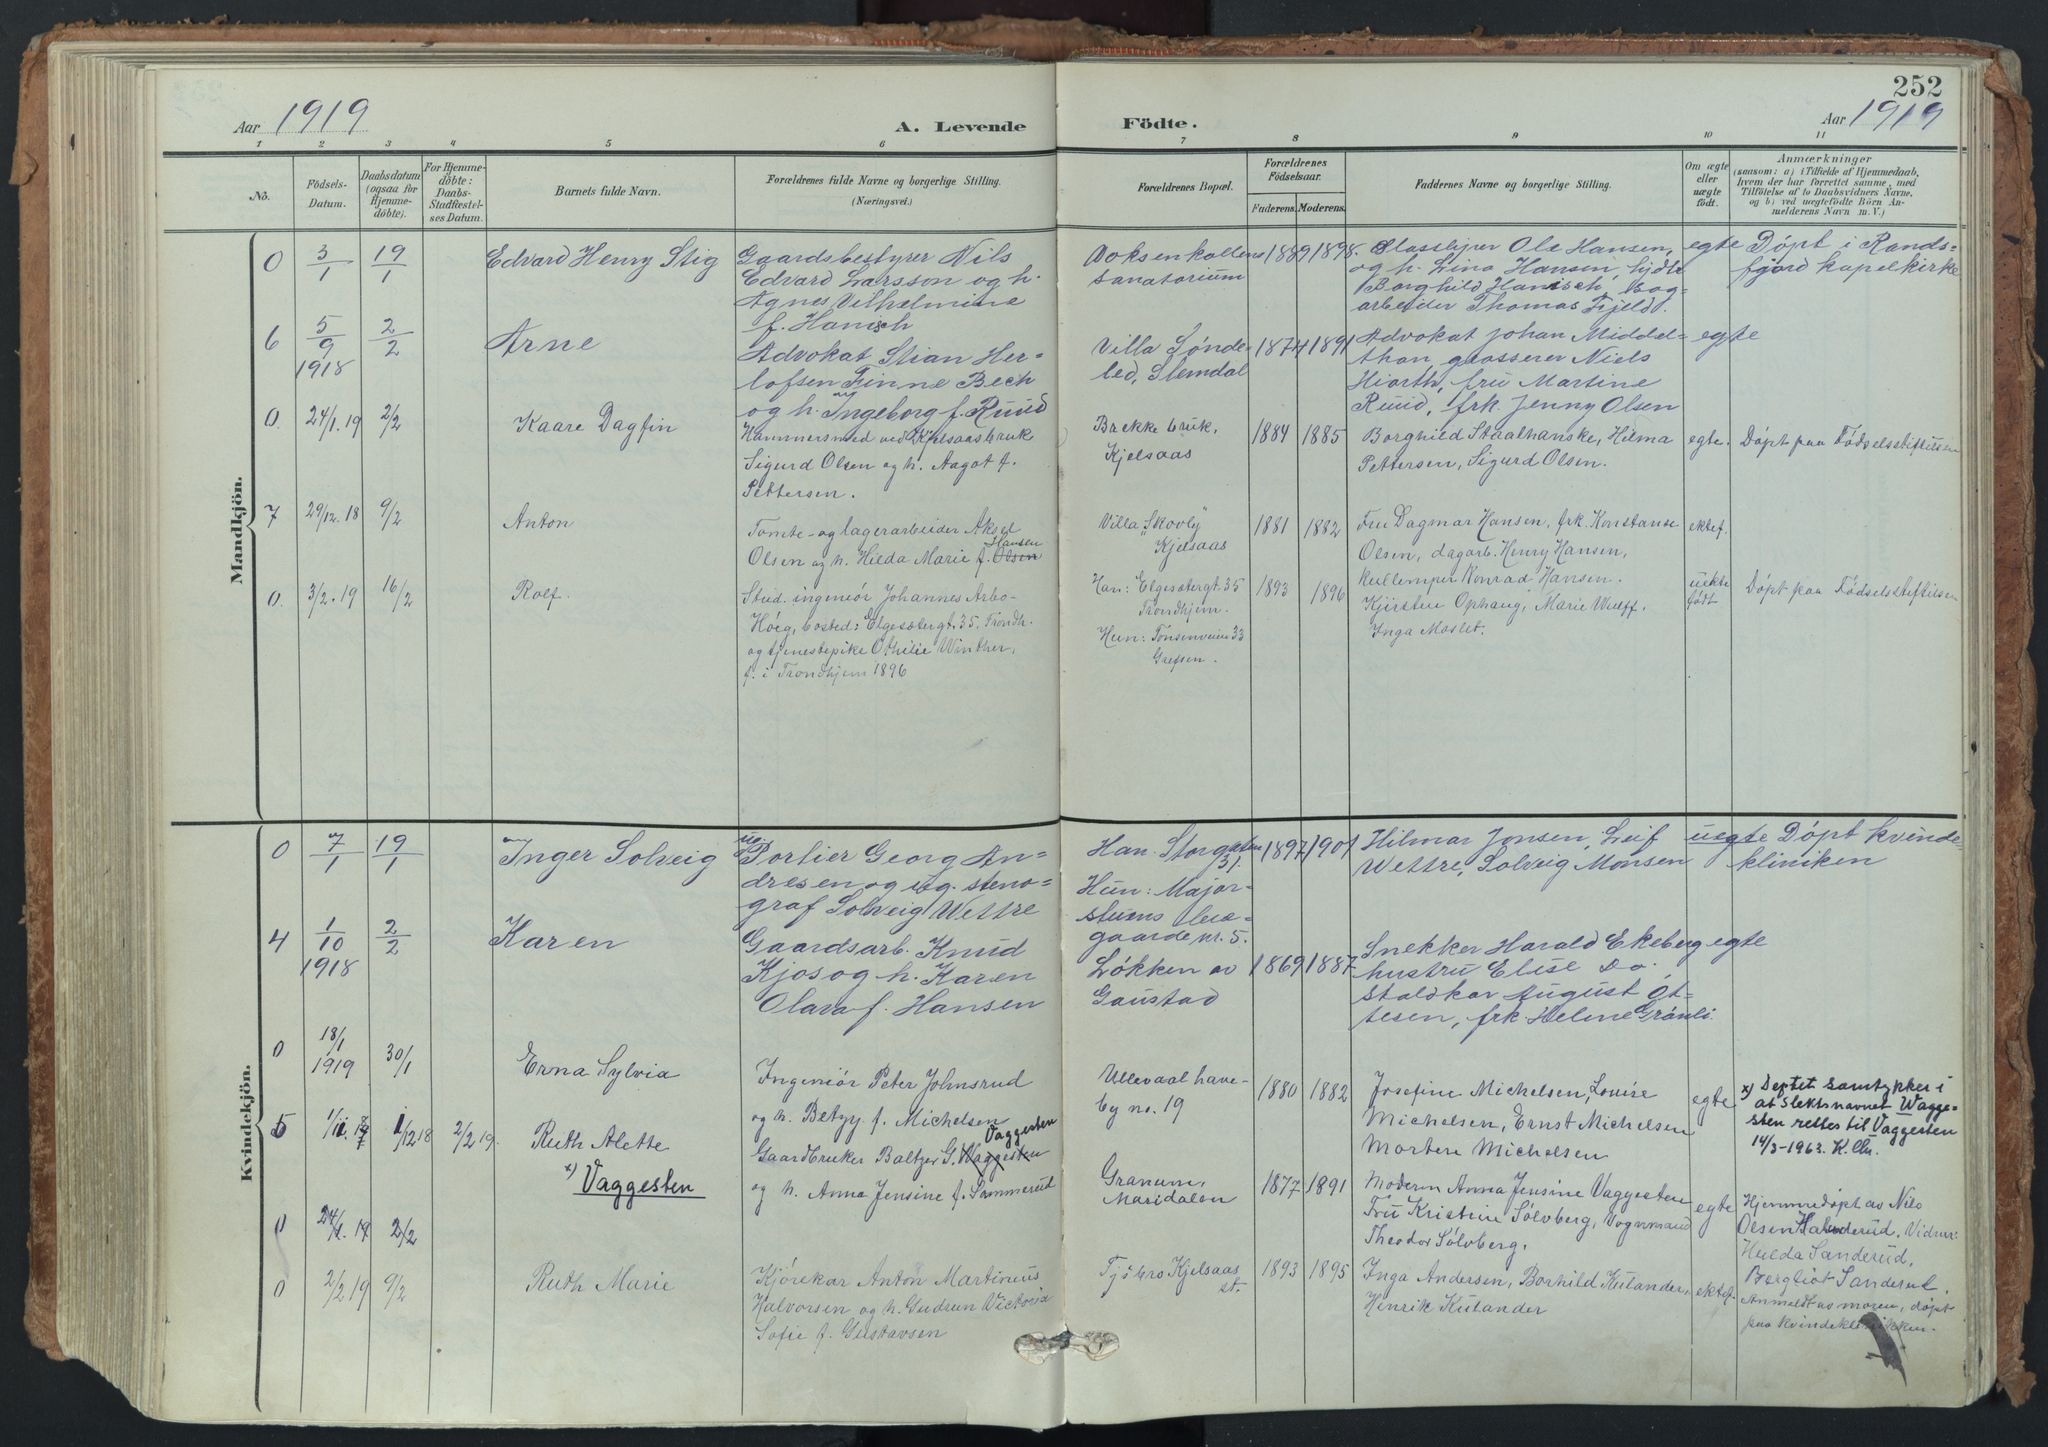 252
Aar 1919
A. Levende Födte.
Aar 1919
1 2 3 4 5 6 7 8 9 10 11
No.
Födsels-
Datum.
Daabsdatum
(ogsaa for
Hjemme-
döbte).
For Hjemme-
döbte:
Daabs-
Stadfæstel-
ses Datum.
Barnets fulde Navn.
Forældrenes fulde Navne og borgerlige Stilling.
(Næringsvei.)
Forældrenes Bopæl.
Forældrenes
Födselsaar.
Faderens. Moderens.
Faddernes Navne og borgerlige Stilling.
Om ægte
eller
uægte
födt.
Anmærkninger
(saasom: a) i Tilfælde af Hjemmedaab,
hvem der har forrettet samme, med
Tilföielse af to Daabsvidners Navne,
og b) ved uægtefödte Börn An-
melderens Navn m. V.)
Mandkjön.
0 3/1 19/1 Edvard Henry Stig
Gaardsbestyrer Nils
Edvard Larsson og h.
Agnes Vilhelmine
f. Hanisch
Voksenkollens
sanatorium
1889 1898.
Ole Hansen,
og h. Lina Hansen, hjdte
Borghild Hanisch, bog-
arbeider Thomas Fjeld.
egte Døpt i Rands-
fjord kapelkirke
6 5/9 1918 2/2 Arne
Advokat Stian Her-
lofsen Finne Bech
og h. Ingeborg f. Ruud
Villa Sønde-
led, Slemdal
1874 1891
Advokat Johan Middel-
than, grosserer Niels
Hiorth, fru Martine
Ruud, frk. Jenny Olsen
egte
0. 24/1. 19 2/2 Kaare Dagfin
Hammersmed ved Kjelsaas bruk
Sigurd Olsen og h. Aagot f.
Pettersen.
Brekke bruk,
Kjelsaas
1884 1885
Borghild Staalhanske, Hilma
Pettersen, Sigurd Olsen.
egte. Døpt paa Fødselsstiftelsen
7 29/12. 18 9/2 Anton
Tomte- og lagerarbeider Aksel
Olsen og h. Hilda Marie f. Olsen Hansen
Villa "Skovly"
Kjelsaas
1881 1882
Fru Dagmar Hansen, frk. Konstanse
Olsen, dagarb. Henry Hansen,
kullemper Konrad Hansen.
ektef.
0. 3/2. 19 16/2 Rolf.
Stud. ingeniør Johannes Arbo-
Høeg, bosted: Elgesætergt. 35, Trondh.
og tjenestepike Othilie Winther,
f. i Trondhjem 1896
Han: Elgesætergt. 35
Trondhjem.
Hun: Tonsenveien 33
Grefsen.
1893 1896
Kjirsten Ophaug, Marie Wulff,
Inga Moslet.
uekte
født
Døpt paa Fødselsstiftelsen
Kvindekjön.
0 7/1 19/1 Inger Solveig
ug. Portier Georg An-
dresen og ug. steno-
graf Solveig Wettre
Han. Storgaten
31.
Hun: Major-
stuens leie-
gaarde nr. 5.
1897 1901
Hilmar Jonsen, Leif
Wettre, Solveig Monsen
uegte Døpt kvinde-
kliniken
4 1/10 1918 2/2 Karen
Gaardsarb. Knud
Kjos og h. Karen
Olava f. Hansen
Løkken av
Gaustad
1869 1887
Snekker Harald Ekeberg
hustru Elise Do.
staldkar August Ot-
tesen, frk. Helene Grønli.
egte
0 18/1 1919 30/1 Erna Sylvia
Ingeniör Peter Johnsrud
og h. Betzy f. Michelsen
Ullevaal have-
by no. 19
1880 1882
Josefine Michelsen, Louise
Michelsen, Ernst Michelsen
Mortere Michelsen
egte
x) Deptet samtykker i
at slektsnavnet Wagge-
sten rettes til Vaggesten
14/3-1963.
5 1/12 18 2/2 19. Ruth Alette
x) Vaggesten
Gaardbruker Baltzer G. Waggesten Vaggesten
og h. Anna Jensine f. Sommerud
Granum,
Maridalen
1877 1891
Moderen Anna Jensine Vaggesten
Fru Kristine Sølvberg, Vognmand
Theodor Sølvberg.
egte
Hjemmedøpt av Nils
Olsen Vidner:
Hulda Sanderud,
Bergliot Sanderud.
0 24/1. 19 2/2
0 2/2. 19 9/2 Ruth Marie
Kjørekar Anton Martinius
Halvorsen og h. Gudrun Victoria
Sofie f. Gustavsen
Kjelsaas
st.
1893 1895
Inga Andersen, Borhild Kulander,
Henrik Kulander
ektef.
Anmeldt av moren, døpt
paa kvindeklinikken.